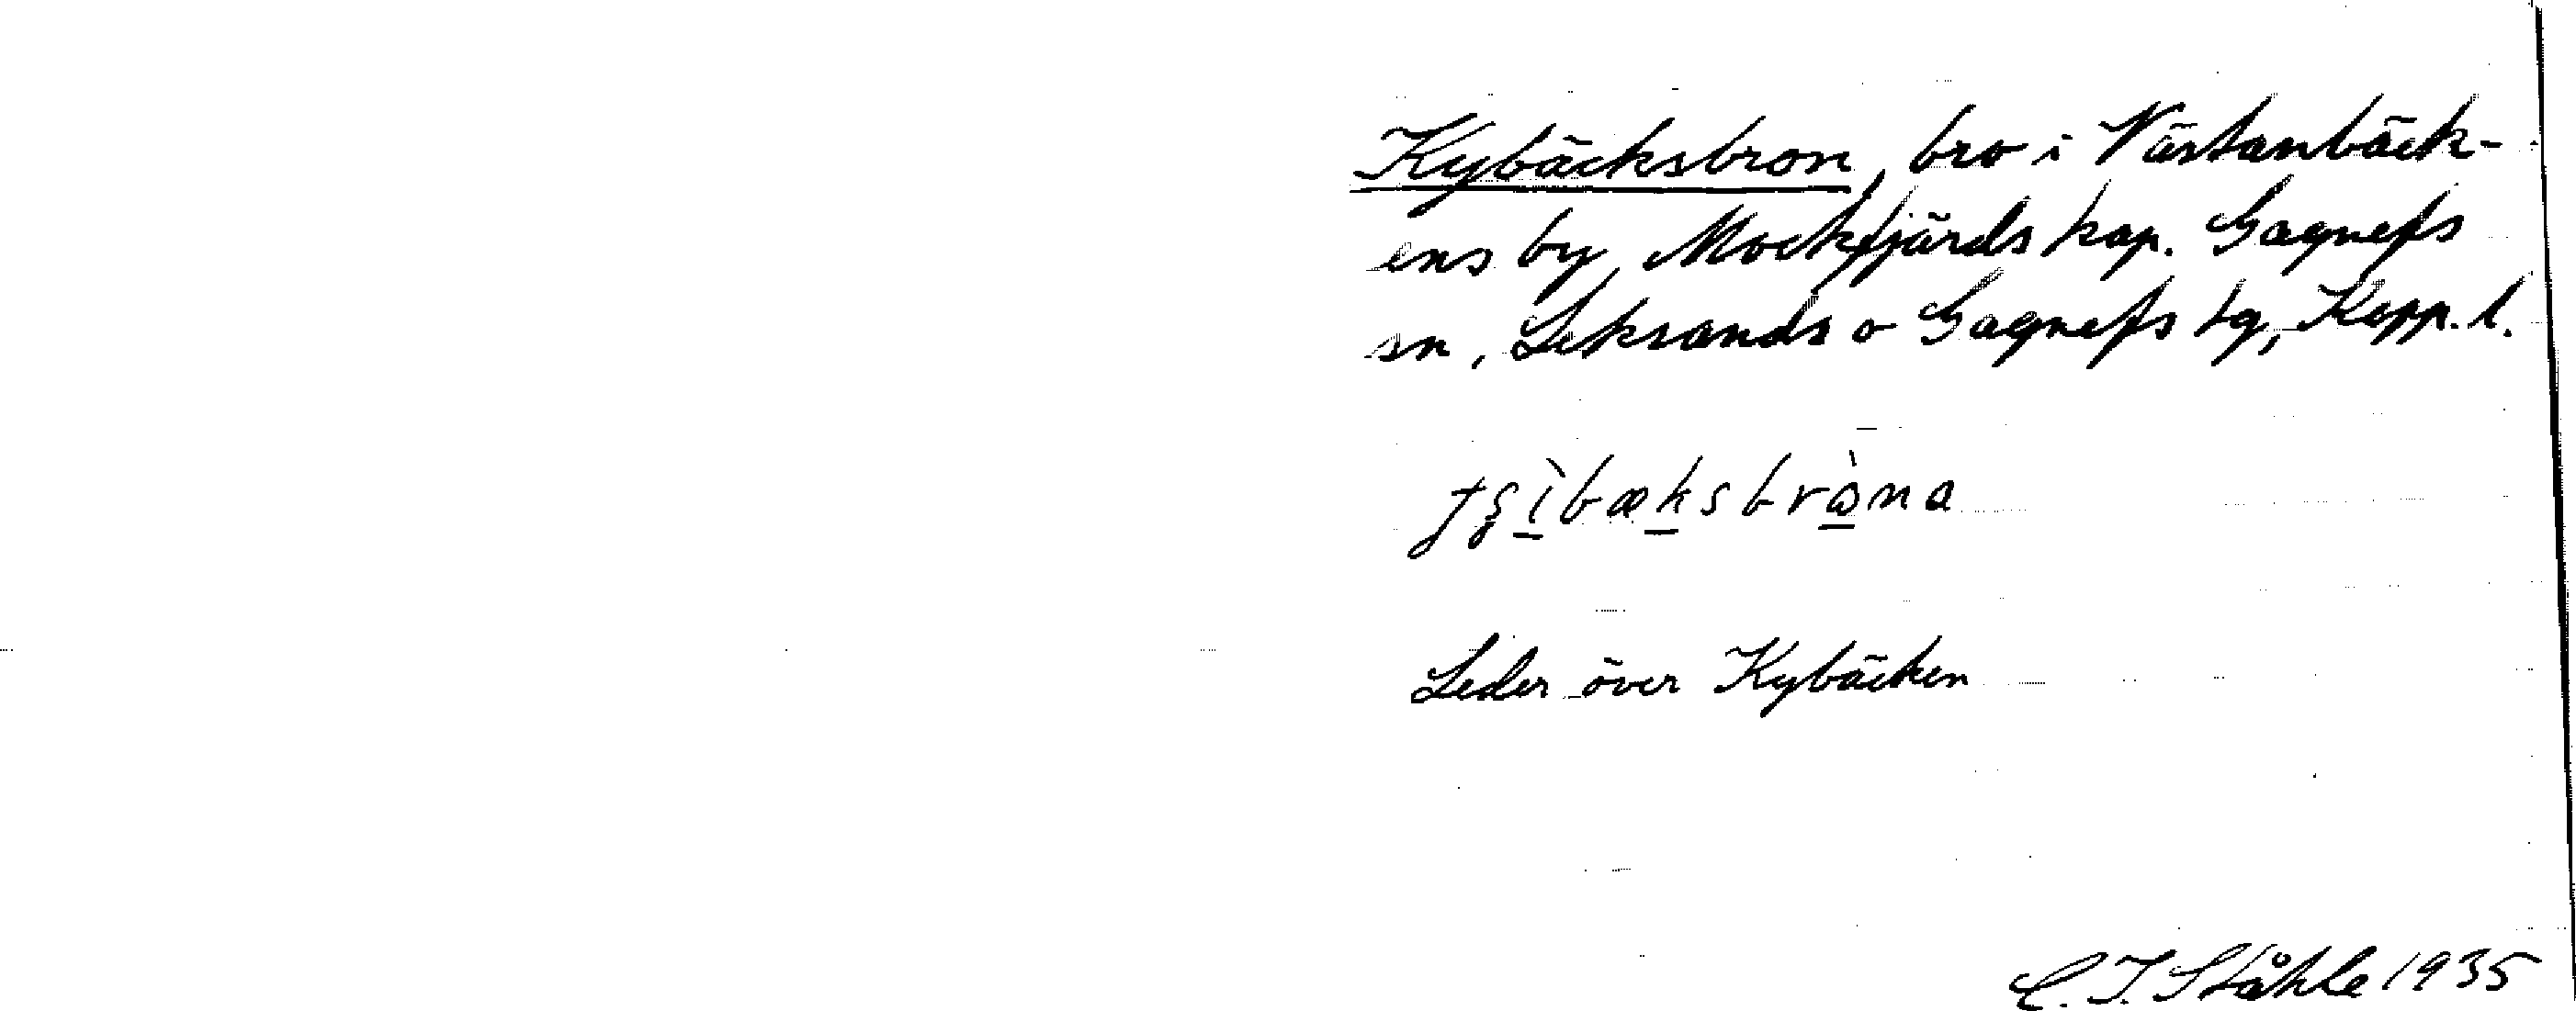 Kybäcksbron, bro i Västanbäck-
ens by, Mockfjärds kap. Gagnefs
sn, Leksands o Gagnefs tg, Kopp. l.
tʂì̠bæk̠sbrɷ̠̀na
Leder över Kybäcken
C. I. Ståhle 1935